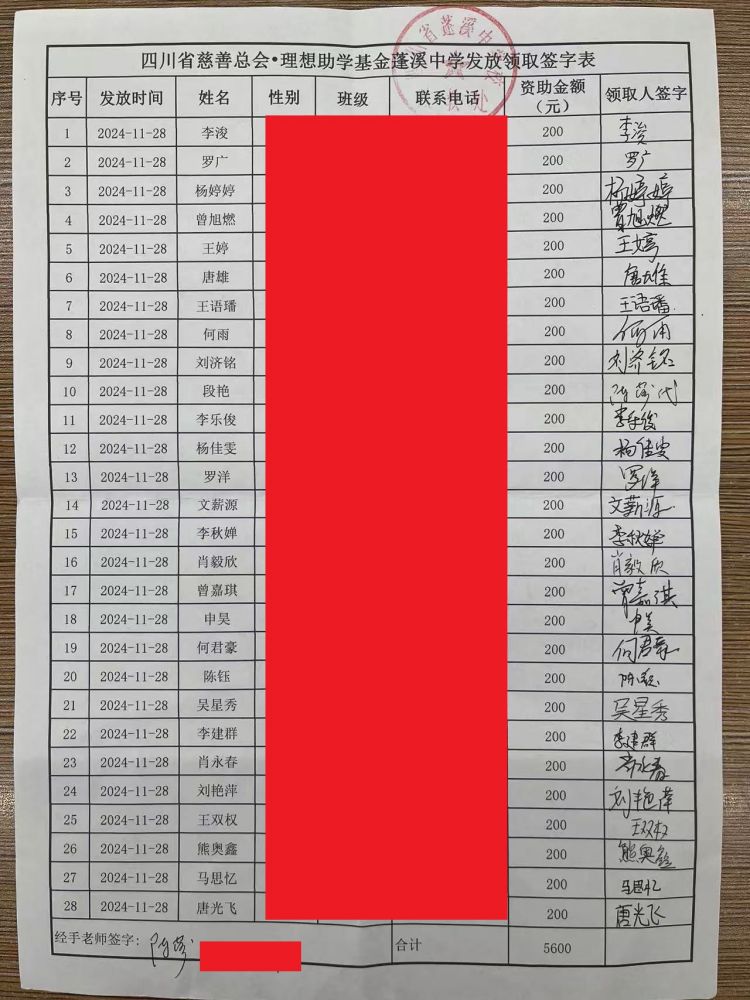 四川省慈善总会•理想助学基金蓬溪中学发放领取签字表
序号 发放时间 姓名 性别 班级 联系电话 资助金额（元） 领取人签字
1 2024-11-28 李浚 200 李浚
2 2024-11-28 罗广 200 罗广
3 2024-11-28 杨婷婷 200 杨婷婷
4 2024-11-28 曾旭燃 200 曾旭燃
5 2024-11-28 王婷 200 王婷
6 2024-11-28 唐雄 200 唐雄
7 2024-11-28 王语璠 200 王语璠
8 2024-11-28 何雨 200 何雨
9 2024-11-28 刘济铭 200 刘济铭
10 2024-11-28 段艳 200 代
11 2024-11-28 李乐俊 200 李乐俊
12 2024-11-28 杨佳雯 200 杨佳雯
13 2024-11-28 罗洋 200 罗洋
14 2024-11-28 文薪源 200 文薪源
15 2024-11-28 李秋婵 200 李秋婵
16 2024-11-28 肖毅欣 200 肖毅欣
17 2024-11-28 曾嘉琪 200 曾嘉琪
18 2024-11-28 申昊 200 申昊
19 2024-11-28 何君豪 200 何君豪
20 2024-11-28 陈钰 200 陈钰
21 2024-11-28 吴星秀 200 吴星秀
22 2024-11-28 李建群 200 李建群
23 2024-11-28 肖永春 200 肖永春
24 2024-11-28 刘艳萍 200 刘艳萍
25 2024-11-28 王双权 200 王双权
26 2024-11-28 熊奥鑫 200 熊奥鑫
27 2024-11-28 马思忆 200 马思忆
28 2024-11-28 唐光飞 200 唐光飞
经手老师签字： 合计 5600